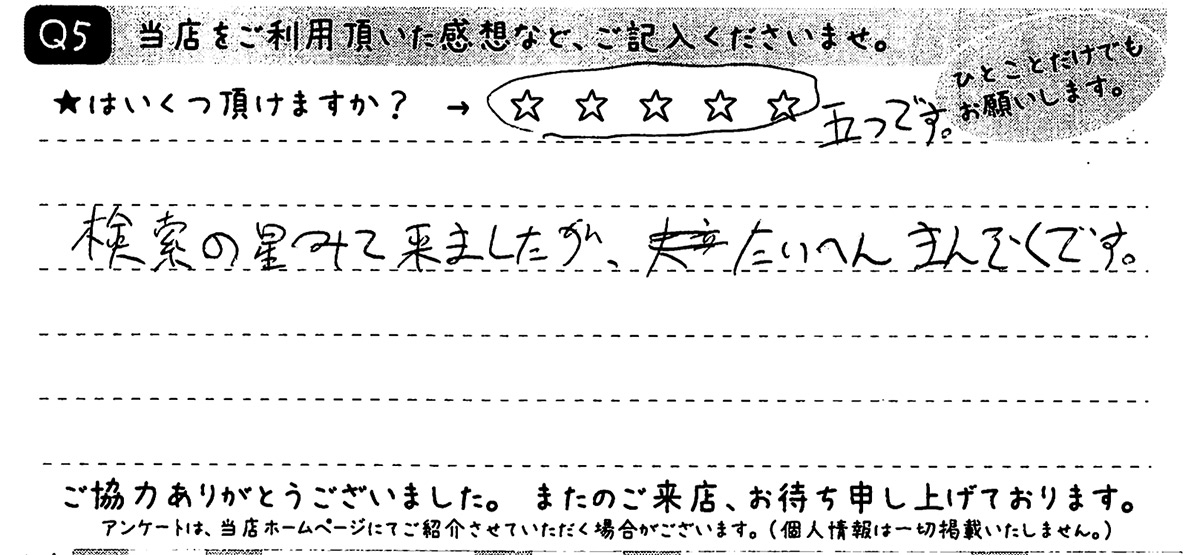 Q5 当店をご利用頂いた感想など、ご記入くださいませ。
ひとことだけでも
お願いします。
★はいくつ頂けますか? → ☆ ☆ ☆ ☆ ☆ 五つです。
検索の星みて来ましたが、たいへんまんぞくです。
ご協力ありがとうございました。 またのご来店、お待ち申し上げております。
アンケートは、当店ホームページにてご紹介させていただく場合がございます。(個人情報は一切掲載いたしません。)